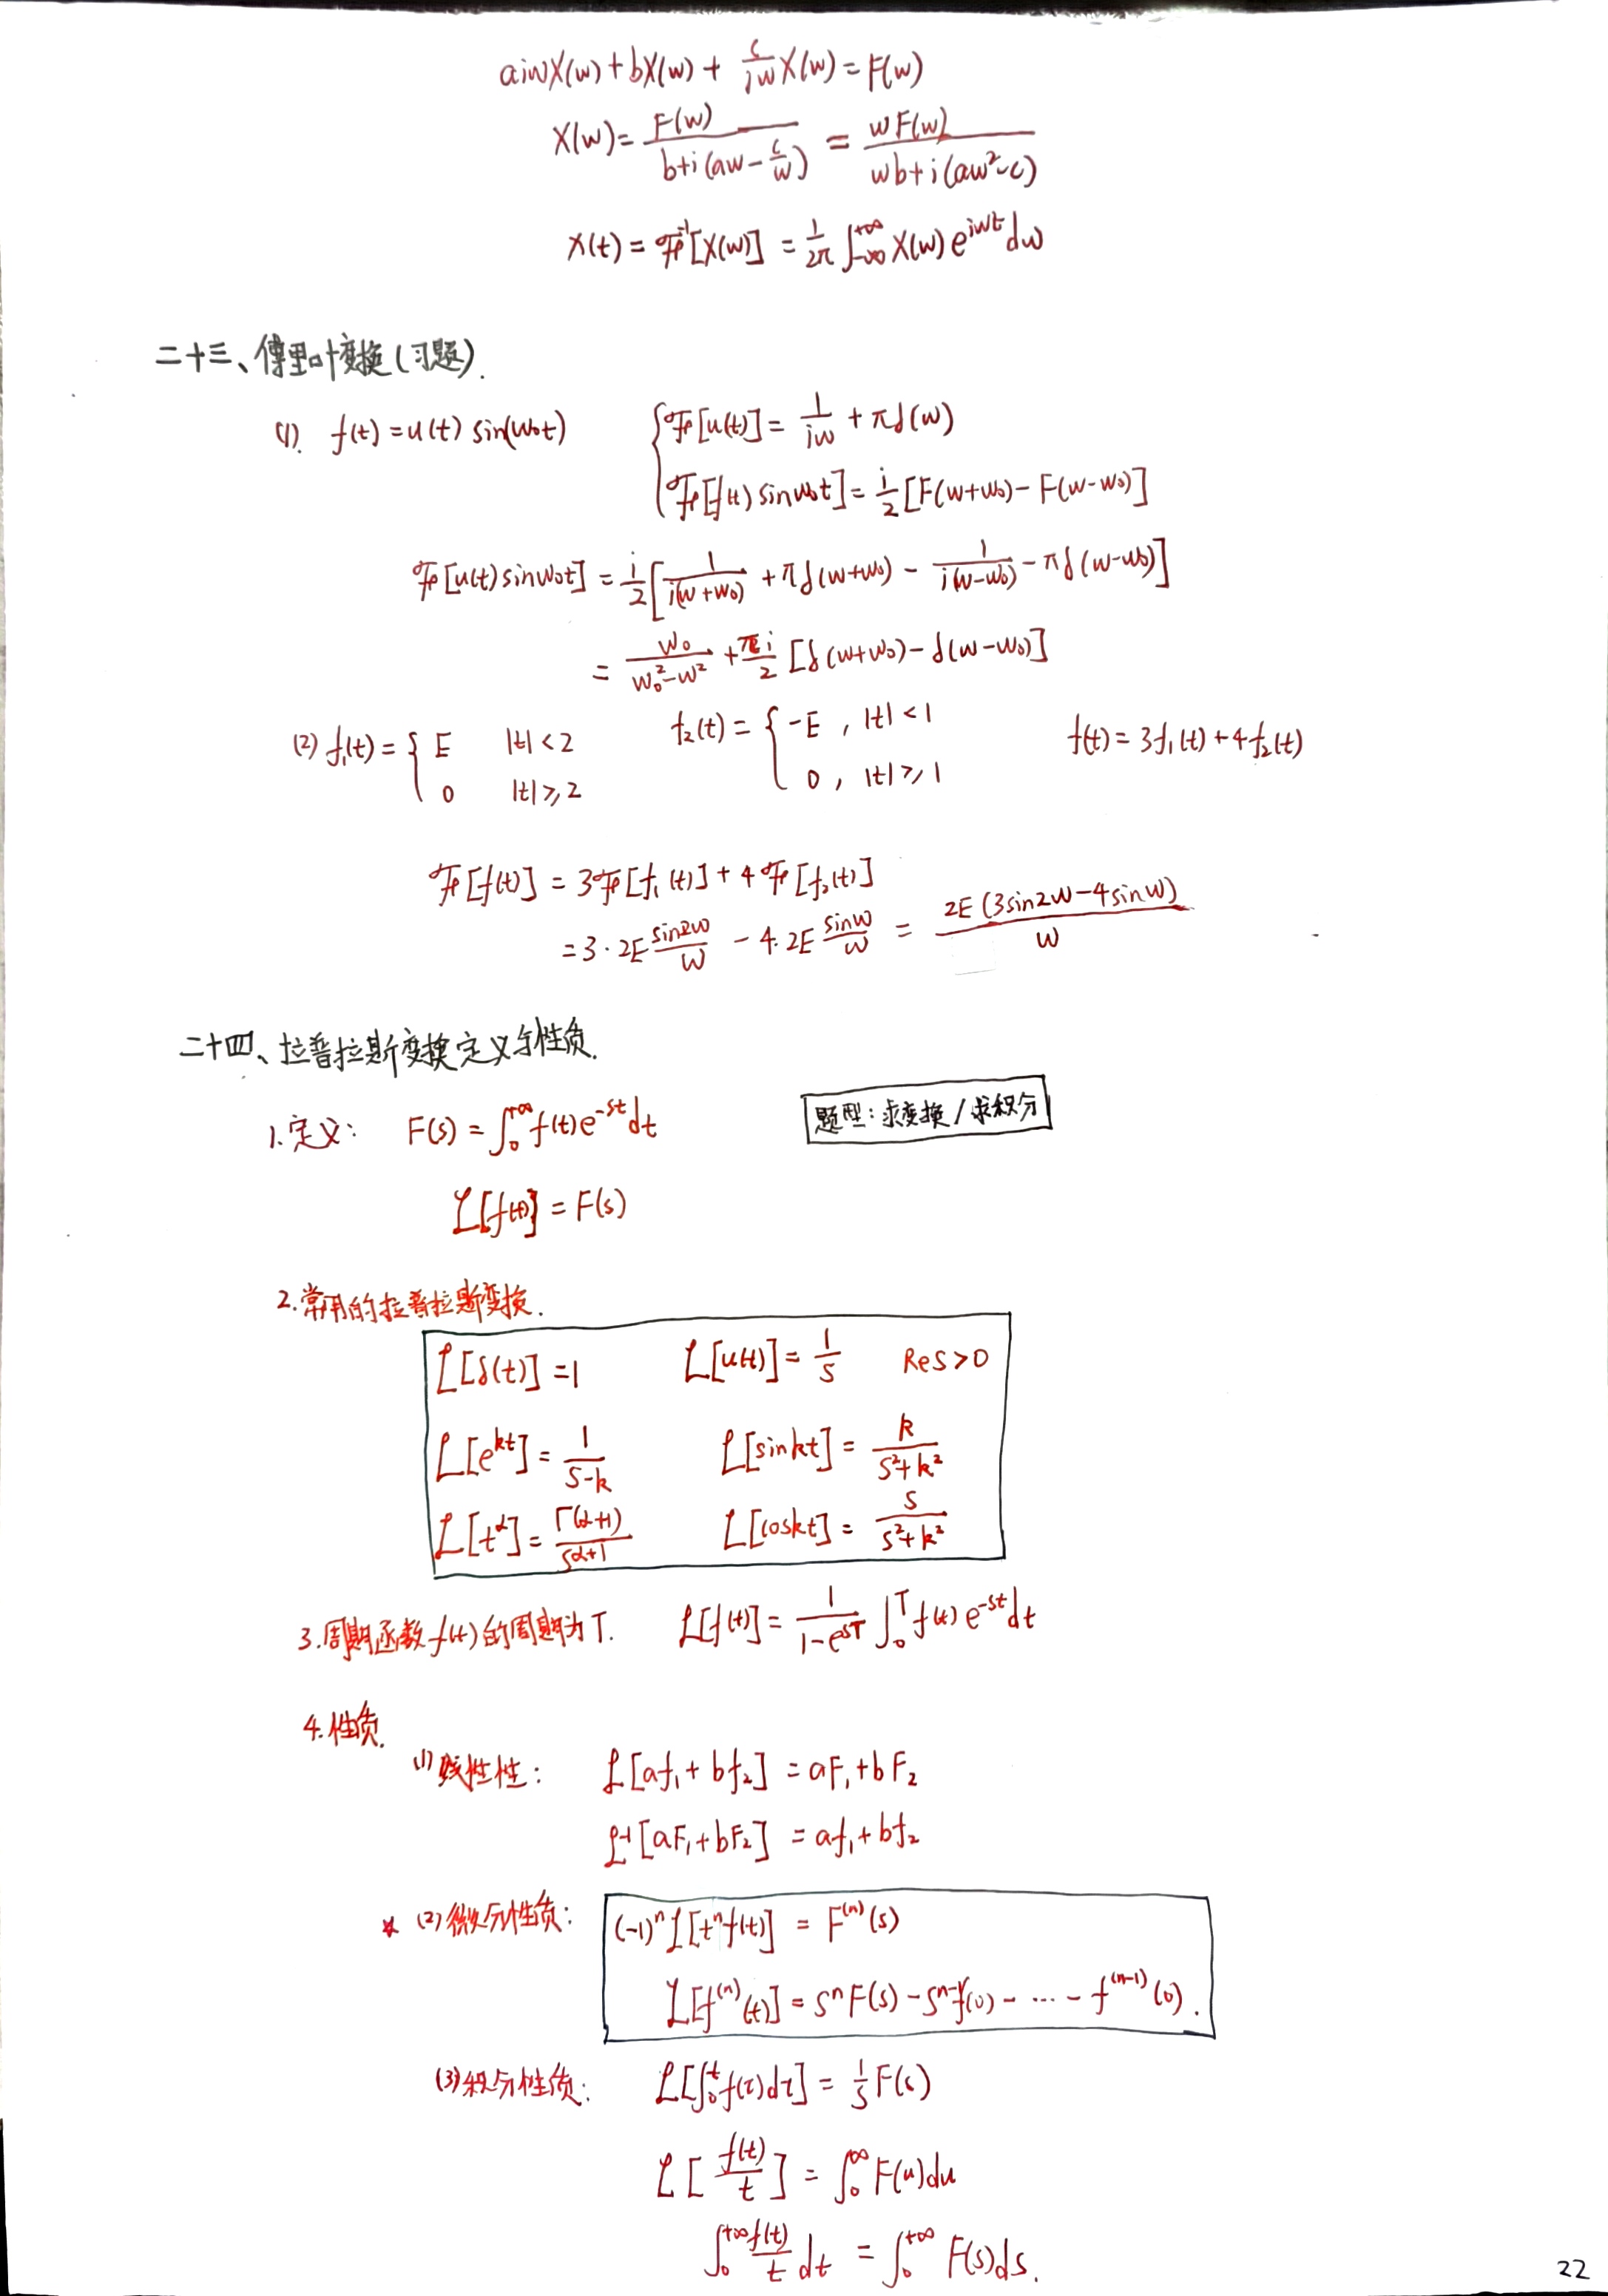 aiwX(w)+bX(w)+ \frac{c}{iw}X(w)=F(w)
X(w)= \frac{F(w)}{b+i(aw-\frac{c}{w})} = \frac{wF(w)}{wb+i(aw^2-c)}
x(t)=ℱ^{-1}[X(w)] = \frac{1}{2π}∫_{-∞}^{+∞}X(w)e^{iwt}dw
二十三、傅里叶变换(习题).
(1). f(t)=u(t) sin(w_0t) { ℱ[u(t)]= \frac{1}{iw}+πδ(w)
ℱ[f(t) sinw_0t]= \frac{i}{2}[F(w+w_0)-F(w-w_0)]
ℱ[u(t)sinw_0t] = \frac{i}{2}[\frac{1}{i(w+w_0)}+πδ(w+w_0)-\frac{1}{i(w-w_0)}-πδ(w-w_0)]
= \frac{w_0}{w_0^2-w^2}+\frac{πi}{2}[δ(w+w_0)-δ(w-w_0)]
(2) f_1(t)= { E |t|<2 f_2(t)= { -E , |t|<1 f(t)=3f_1(t)+4f_2(t)
0 |t|≥2 0 , |t|≥1
ℱ[f(t)] = 3ℱ[f_1(t)]+4ℱ[f_2(t)]
=3·2E\frac{sin2w}{w} - 4·2E\frac{sinw}{w} = \frac{2E(3sin2w-4sinw)}{w}
二十四、拉普拉斯变换定义与性质.
1.定义: F(s)=∫_0^{+∞}f(t)e^{-st}dt 题型:求变换/求积分
ℒ[f(t)]=F(s)
2.常用的拉普拉斯变换.
ℒ[δ(t)]=1 ℒ[u(t)]=\frac{1}{s} Res>0
ℒ[e^{kt}]=\frac{1}{s-k} ℒ[sinkt]=\frac{k}{s^2+k^2}
ℒ[t^α]=\frac{Γ(α+1)}{s^{α+1}} ℒ[coskt]=\frac{s}{s^2+k^2}
3.周期函数f(t)的周期为T. ℒ[f(t)]=\frac{1}{1-e^{sT}}∫_0^T f(t)e^{-st}dt
4.性质.
(1)线性性: ℒ[af_1+bf_2]=aF_1+bF_2
ℒ^{-1}[aF_1+bF_2]=af_1+bf_2
* (2)微分性质: (-1)^nℒ[t^nf(t)] = F^{(n)}(s)
ℒ[f^{(n)}(t)]=s^nF(s)-s^{n-1}f(0)-…-f^{(n-1)}(0).
(3)积分性质: ℒ[∫_0^t f(τ)dτ]=\frac{1}{s}F(s)
ℒ[\frac{f(t)}{t}]=∫_0^∞F(u)du
∫_0^{+∞}\frac{f(t)}{t}dt=∫_0^{+∞}F(s)ds.
22